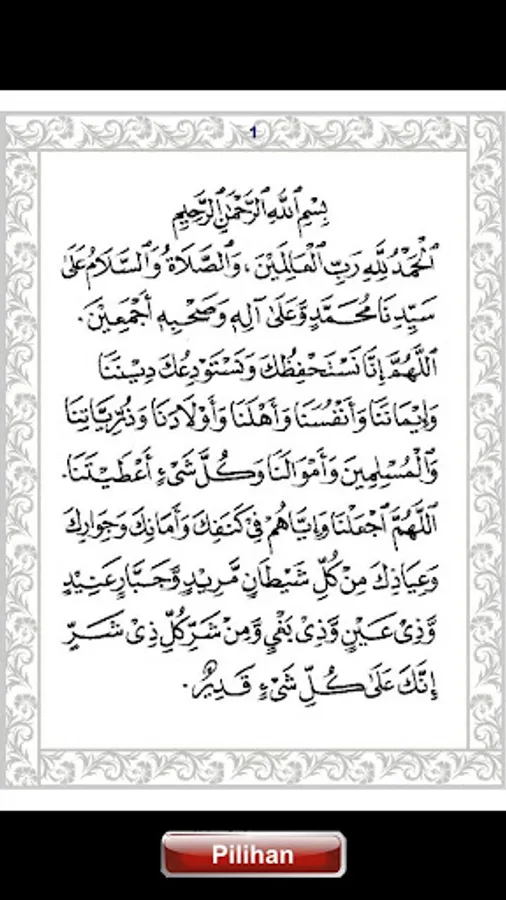 1
بِسْمِ ٱللهِ ٱلرَّحْمٰنِ ٱلرَّحِيْمِ
اَلْحَمْدُ لِلّٰهِ رَبِّ الْعَالَمِيْنَ ، وَالصَّلَاةُ وَالسَّلَامُ عَلٰى
سَيِّدِنَا مُحَمَّدٍ وَّعَلٰى آلِهٖ وَصَحْبِهٖ أَجْمَعِيْنَ .
اَللّٰهُمَّ إِنَّا نَسْتَحْفِظُكَ وَنَسْتَوْدِعُكَ دِيْنَنَا
وَإِيْمَانَنَا وَأَنْفُسَنَا وَأَهْلَنَا وَأَوْلَادَنَا وَذُرِّيَّاتِنَا
وَالْمُسْلِمِيْنَ وَأَمْوَالَنَا وَكُلَّ شَيْءٍ أَعْطَيْتَنَا.
اَللّٰهُمَّ اجْعَلْنَا وَإِيَّاهُمْ فِيْ كَنَفِكَ وَأَمَانِكَ وَجِوَارِكَ
وَعِيَاذِكَ مِنْ كُلِّ شَيْطَانٍ مَّرِيْدٍ وَّجَبَّارٍ عَنِيْدٍ
وَّذِيْ عَيْنٍ وَّذِيْ بَغْيٍ وَّمِنْ شَرِّ كُلِّ ذِيْ شَرٍّ
إِنَّكَ عَلٰى كُلِّ شَيْءٍ قَدِيْرٌ .
Pilihan